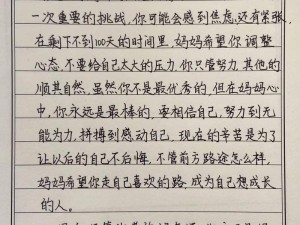 一次重要的挑战,你可能会感到焦虑,还有紧张,
在剩下不到100天的时间里,妈妈希望你调整
心态,不要给自己太大的压力,你只管努力,其他的
顺其自然。虽然你不是最优秀的,但在妈妈心
中,你永远是最棒的,要相信自己,努力到无
能为力,拼搏到感动自己,现在的辛苦是为了
让以后的自己不后悔,不管前方路途怎么样,
妈妈希望你走自己喜欢的路,成为自己想成长
的人。